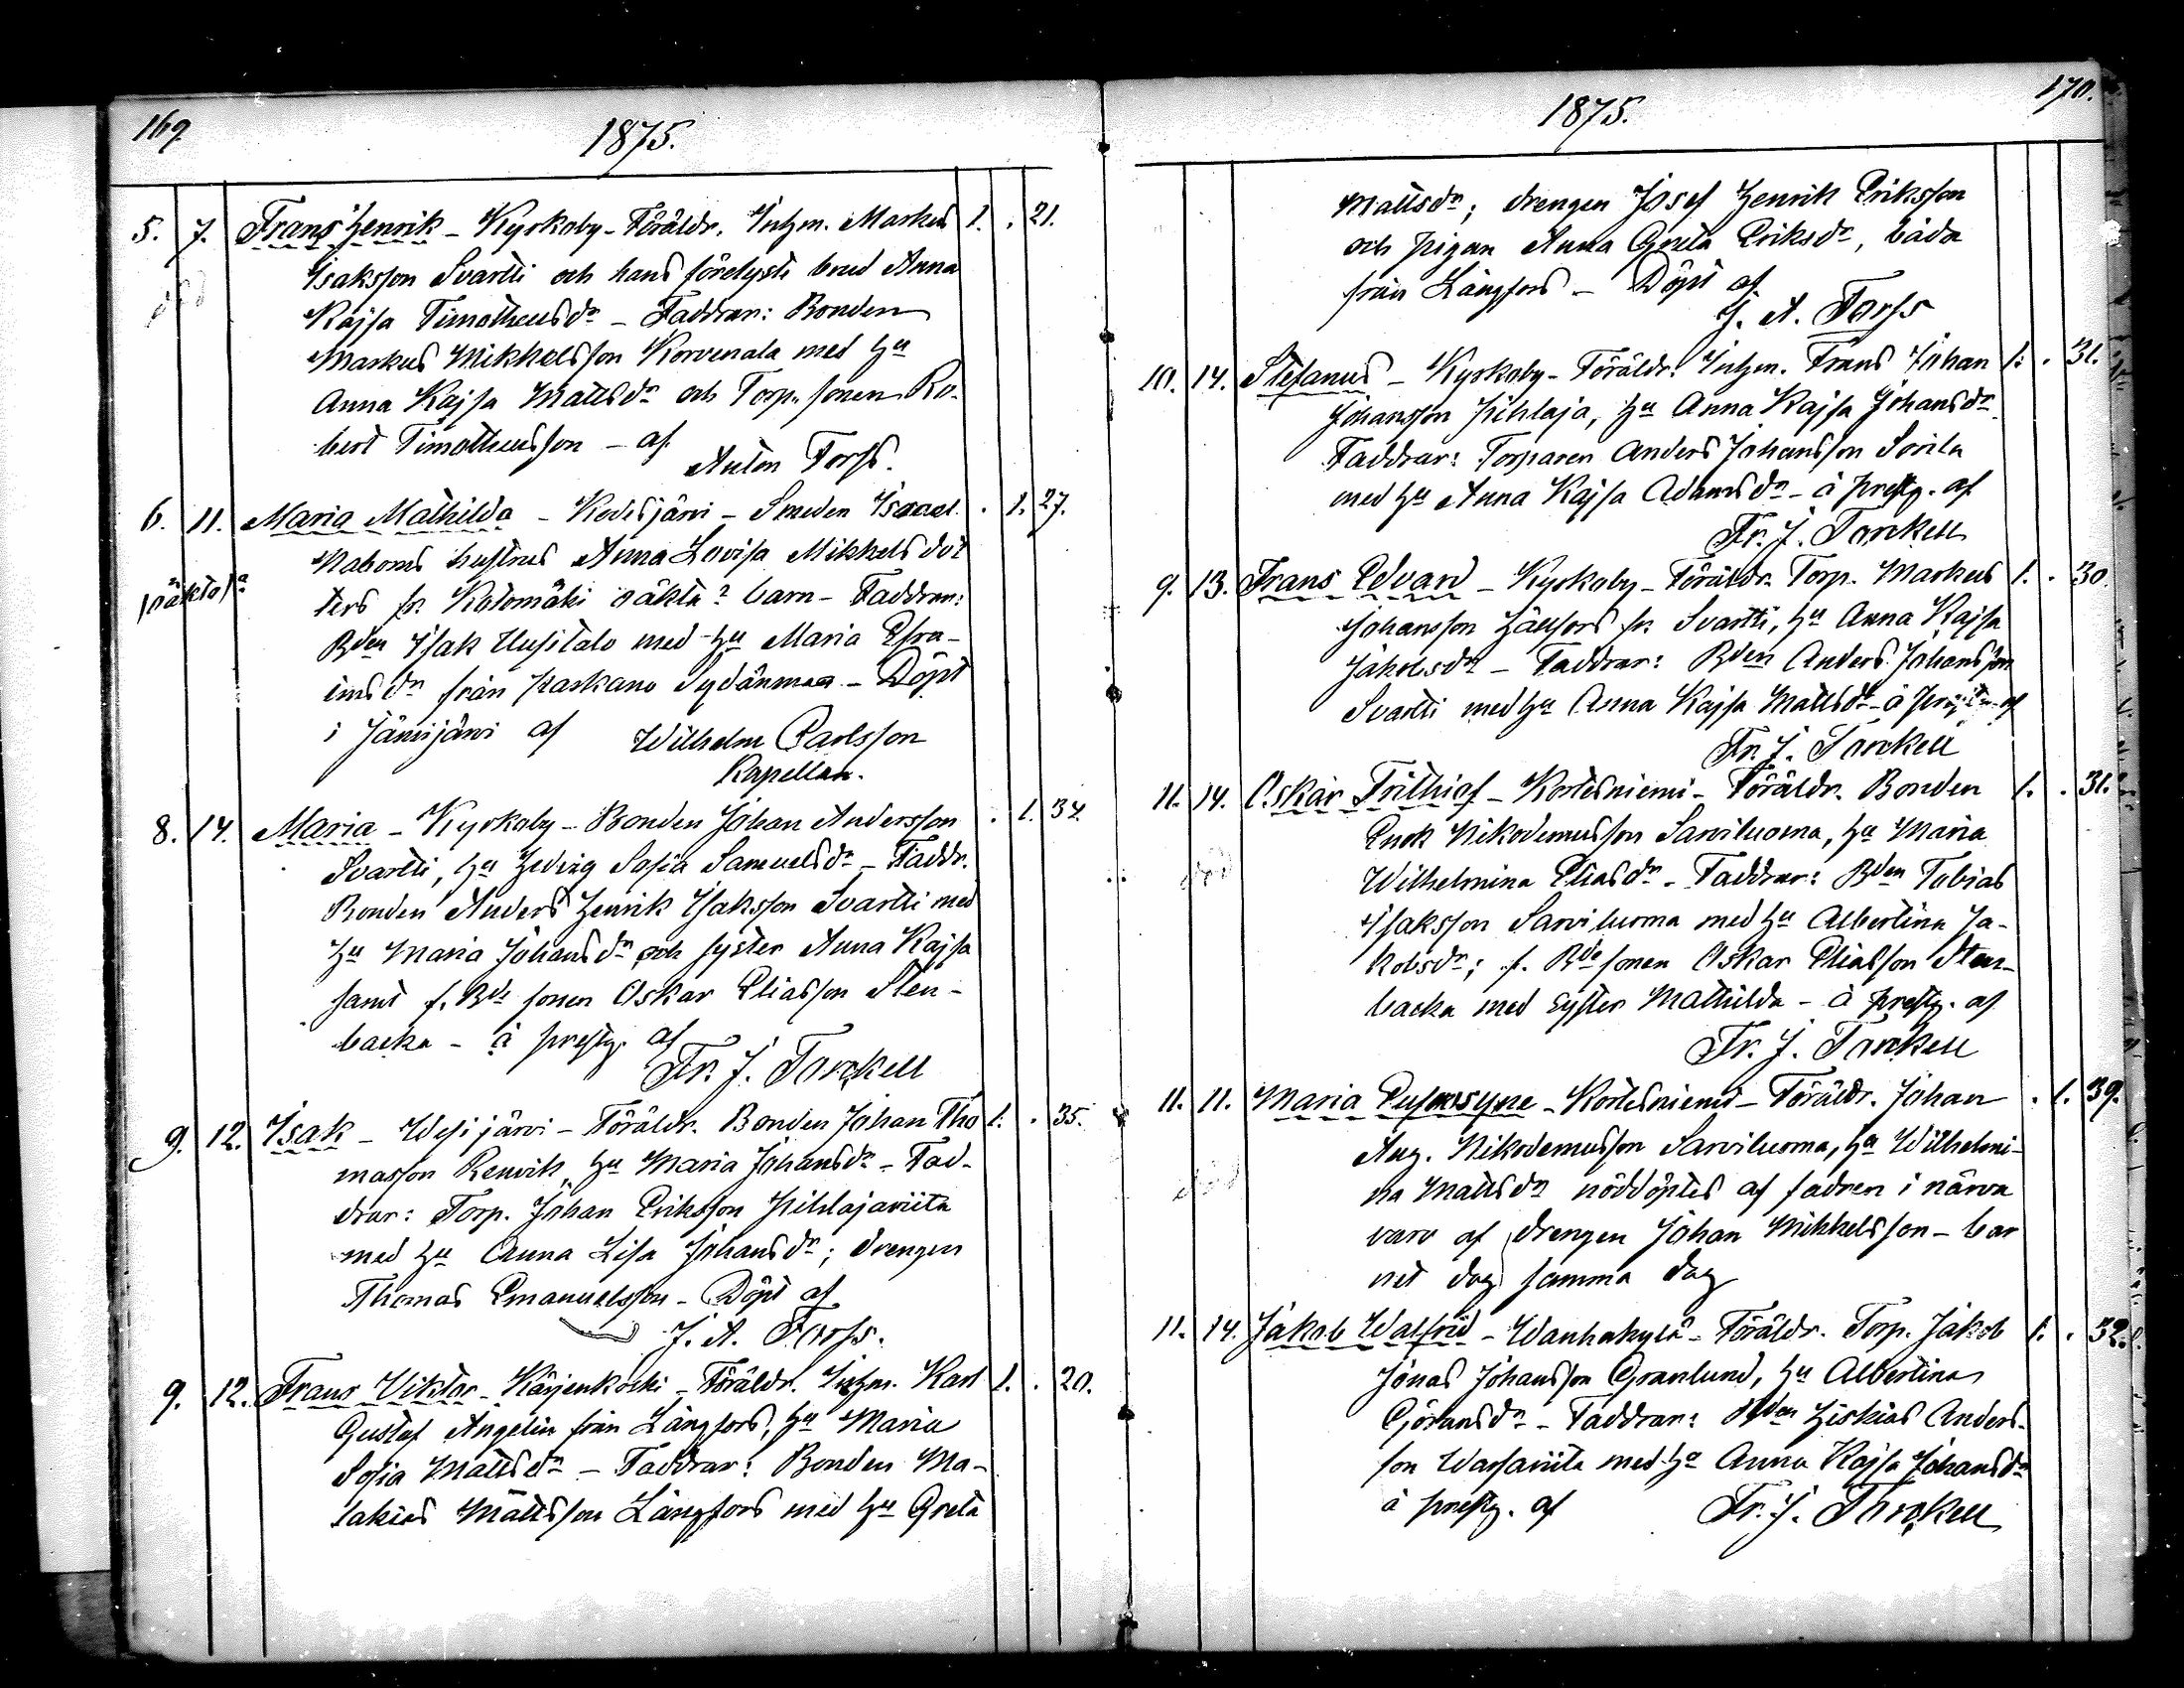 169
1875.
5. 7. Frans Henrik - Kyrkoby - Föräldr. Inhm. Markus 1. . 21.
Isaksson Svartti och hans förelysta brud Anna
död
Kajsa Timotheusdr - Faddrar: Bonden
Markus Mikkelsson Korvenala med Hu
Anna Kajsa Mattsdr och Torp. sonen Ro-
bert Timotheusson - af
Anton Forss.
6. 11. Maria Mathilda - Kodesjärvi - Smeden Israel . 1. 27.
Naboms hustrus Anna Lovisa Mikkelsdot
oäkta
ters fr. Kotomäki oäkta? barn - Faddrar:
Bden Isak Uusitalo med Hu Maria Efra-
imsdr från Parkano Sydänmaa - Döpt
i Jämijärvi af Wilhelm Carlsson
Kapellan.
8. 14. Maria - Kyrkoby - Bonden Johan Andersson . 1. 34
Svartti, Hu Hedvig Sofia Samuelsdr - Faddr.
Bonden Anders Henrik Isaksson Svartti med
Hu Maria Johansdr och syster Anna Kajsa
samt f. Bde sonen Oskar Eliasson Sten-
backa - å prestg. af
Fr. J. Tarckell
9. 12. Isak - Wesijärvi - Föräldr. Bonden Johan Tho 1. . 35.
masson Renvik, Hu Maria Johansdr - Fad-
drar: Torp. Johan Eriksson Pihlajaviita
med Hu Anna Lisa Johansdr; drengen
Thomas Emanuelsson - Döpt af
J. A. Forss.
9. 12. Frans Viktor - Kärjenkoski - Föräldr. Inhm. Karl 1. . 20.
Gustaf Angelin från Långfors, Hu Maria
Sofia Mattsdr - Faddrar: Bonden Ma-
lakias Mattsson Långfors med Hu Greta
170.
1875.
Mattsdr; drengen Josef Henrik Eriksson
och pigan Anna Greta Eriksdr, båda
från Långfors - Döpt af
J. A. Forss
10. 14. Stefanus - Kyrkoby - Föräldr. Inhm. Frans Johan 1. . 31.
Johansson Pihlaja, Hu Anna Kajsa Johansdr
Faddrar: Torparen Anders Johansson Sorila
med Hu Anna Kajsa Adamsdr - å prestg. af
Fr. J. Tarckell
9. 13. Frans Edvard - Kyrkoby - Föräldr. Torp. Markus 1. . 30.
Johansson Hällfors fr. Svartti, Hu Anna Kajsa
Jakobsdr - Faddrar: Bden Anders Johansson
Svartti med Hu Anna Kajsa Mattsdr - å af
Fr. J. Tarckell
11. 14. Oskar Frithiof - Kortesniemi - Föräldr. Bonden 1. . 31.
Enok Nikodemusson Sarviluoma, Hu Maria
död
Wilhelmina Eliasdr - Faddrar: Bden Tobias
Isaksson Sarviluoma med Hu Albertina Ja-
kobsdr; f. Bde sonen Oskar Eliasson Sten-
backa med syster Mathilda - å prestg. af
Fr. J. Tarckell
11. 11. Maria Eufrosyne - Kortesniemi - Föräldr. Johan . 1. 39.
Aug. Nikodemusson Sarviluoma, Hu Wilhelmi-
död
na Mattsdr nöddöptes af fadren i närva
varo af drengen Johan Mikkelsson - bar
net dog samma dag
11. 14. Jakob Walfrid - Wanhakylä - Föräldr. Torp. Jakob 1. . 32.
Jonas Johansson Granlund, Hu Albertina
Göransdr - Faddrar: Bden Hiskias Anders-
son Warsaviita med Hu Anna Kajsa Johansdr
å prestg. af Fr. J. Tarckell